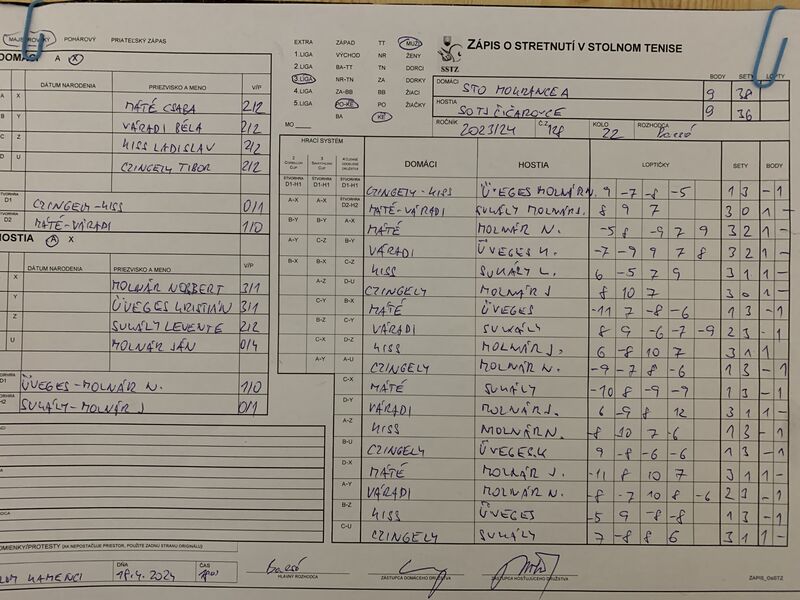 MAJSTROVSKÝ POHÁROVÝ PRIATEĽSKÝ ZÁPAS
DOMÁCI A X
DÁTUM NARODENIA PRIEZVISKO A MENO V/P
A X MÁTÉ CSABA 2/2
B Y VÁRADI BÉLA 2/2
C Z KISS LADISLAV 2/2
D U CZINGELY TIBOR 2/2
D1 CZINGELY-KISS 0/1
D2 MÁTÉ-VÁRADI 1/0
HOSTIA A X
DÁTUM NARODENIA PRIEZVISKO A MENO V/P
X MOLNÁR NORBERT 3/1
Y ÜVEGES KRISTIÁN 3/1
Z SUKÁLY LEVENTE 2/2
U MOLNÁR JÁN 0/4
ÜVEGES-MOLNÁR N. 1/0
SUKÁLY-MOLNÁR J 0/1
EXTRA ZÁPAD TT MUŽI
1.LIGA VÝCHOD NR ŽENY
2.LIGA BA-TT TN DORCI
3.LIGA NR-TN ZA DORKY
4.LIGA ZA-BB BB ŽIACI
5.LIGA PO-KE PO ŽIAČKY
MO BA KE
SSTZ
ZÁPIS O STRETNUTÍ V STOLNOM TENISE
BODY SETY LOPTY
DOMÁCI STO MOKRANCE A 9 38
HOSTIA SO TJ ČIČAROVCE 9 36
ROČNÍK 2023/24 Č.Z. 128 KOLO 22 ROZHODCA
HRACÍ SYSTÉM
DOMÁCI HOSTIA LOPTIČKY SETY BODY
ŠTVORHRA D1-H1 ŠTVORHRA D1-H1 ŠTVORHRA D1-H1 CZINGELY-KISS ÜVEGES MOLNÁR N. 9 -7 -8 -5 1 3 - 1
A-X A-X ŠTVORHRA D2-H2 MÁTÉ-VÁRADI SUKÁLY MOLNÁR J. 8 9 7 3 0 1 -
B-Y B-Y A-X MÁTÉ MOLNÁR N. -5 8 -9 7 9 3 2 1 -
A-Y C-Z B-Y VÁRADI ÜVEGES K. -7 -9 9 7 8 3 2 1 -
B-X B-X C-Z KISS SUKÁLY L. 6 -5 7 9 3 1 1 -
A-Z D-U CZINGELY MOLNÁR J 8 10 7 3 0 1 -
C-Y B-X MÁTÉ ÜVEGES -11 7 -8 -6 1 3 - 1
B-Z C-Y VÁRADI SUKÁLY 8 9 -6 -7 -9 2 3 - 1
C-X D-Z KISS MOLNÁR J. 6 -8 10 7 3 1 1
A-Y A-U CZINGELY MOLNÁR N. -9 -7 8 -6 1 3 - 1
C-X MÁTÉ SUKÁLY -10 8 -9 -9 1 3 - 1
D-Y VÁRADI MOLNÁR J. 6 -9 8 12 3 1 1 -
A-Z KISS MOLNÁR N. -8 -10 7 -6 1 3 - 1
B-U CZINGELY ÜVEGES.K 9 -8 -6 -6 1 3 - 1
D-X MÁTÉ MOLNÁR J. -11 8 10 7 3 1 1 -
A-Y VÁRADI MOLNÁR N. -8 -7 10 8 -6 2 3 - 1
B-Z KISS ÜVEGES -5 9 -8 -8 1 3 - 1
C-U CZINGELY SUKÁLY 7 -8 8 6 3 1 1 -
(AK NEPOSTAČUJE PRIESTOR, POUŽITE ZADNÚ STRANU ORIGINÁLU)
KAMENCI DŇA 19.4.2024 ČAS
HLAVNÝ ROZHODCA ZÁSTUPCA DOMÁCEHO DRUŽSTVA ZÁSTUPCA HOSŤUJÚCEHO DRUŽSTVA ZÁPIS_OsSTZ